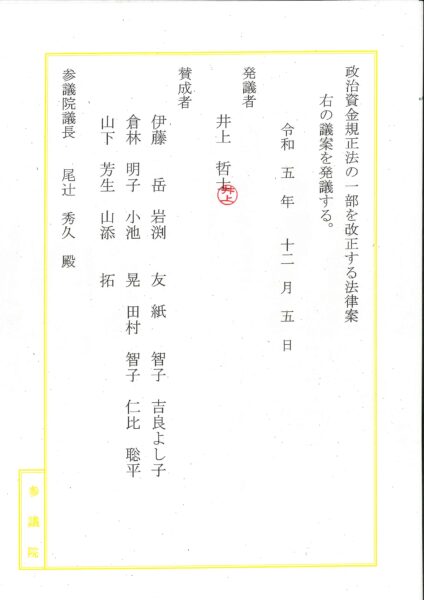 政治資金規正法の一部を改正する法律案
右の議案を発議する。
令和 五 年 十二 月 五 日
発議者
井上 哲士
井上
賛成者
伊藤 岳 岩渕 友 紙 智子 吉良よし子
倉林 明子 小池 晃 田村 智子 仁比 聡平
山下 芳生 山添 拓
参議院議長 尾辻 秀久 殿
参議院